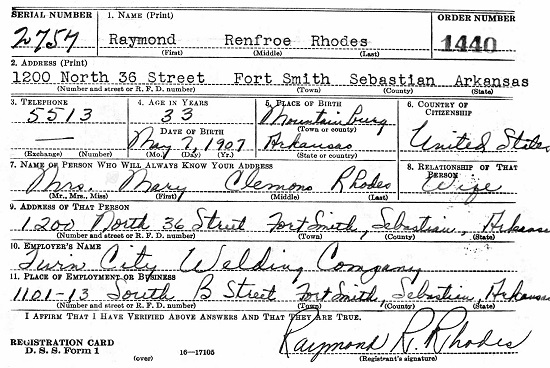 SERIAL NUMBER 1. NAME (Print) ORDER NUMBER
2757 Raymond Renfroe Rhodes 1440
(First) (Middle) (Last)
2. ADDRESS (Print)
1200 North 36 Street Fort Smith Sebastian Arkansas
(Number and street or R. F. D. number) (Town) (County) (State)
3. TELEPHONE 4. AGE IN YEARS 5. PLACE OF BIRTH 6. COUNTRY OF CITIZENSHIP
5513 33 Mountainburg
(Town or county)
DATE OF BIRTH
— May 7, 1907 Arkansas United States
(Exchange) (Number) (Mo.) (Day) (Yr.) (State or country)
7. NAME OF PERSON WHO WILL ALWAYS KNOW YOUR ADDRESS 8. RELATIONSHIP OF THAT PERSON
Mrs. Mary Clemons Rhodes Wife
(Mr., Mrs., Miss) (First) (Middle) (Last)
9. ADDRESS OF THAT PERSON
1200 North 36 Street Fort Smith, Sebastian, Arkansas
(Number and street or R. F. D. number) (Town) (County) (State)
10. EMPLOYER'S NAME
Twin City Welding Company
11. PLACE OF EMPLOYMENT OR BUSINESS
1101-13 South B Street Fort Smith, Sebastian, Arkansas
(Number and street or R. F. D. number) (Town) (County) (State)
I AFFIRM THAT I HAVE VERIFIED ABOVE ANSWERS AND THAT THEY ARE TRUE.
REGISTRATION CARD
D. S. S. Form 1 (over) 16—17105
Raymond R. Rhodes
(Registrant's signature)